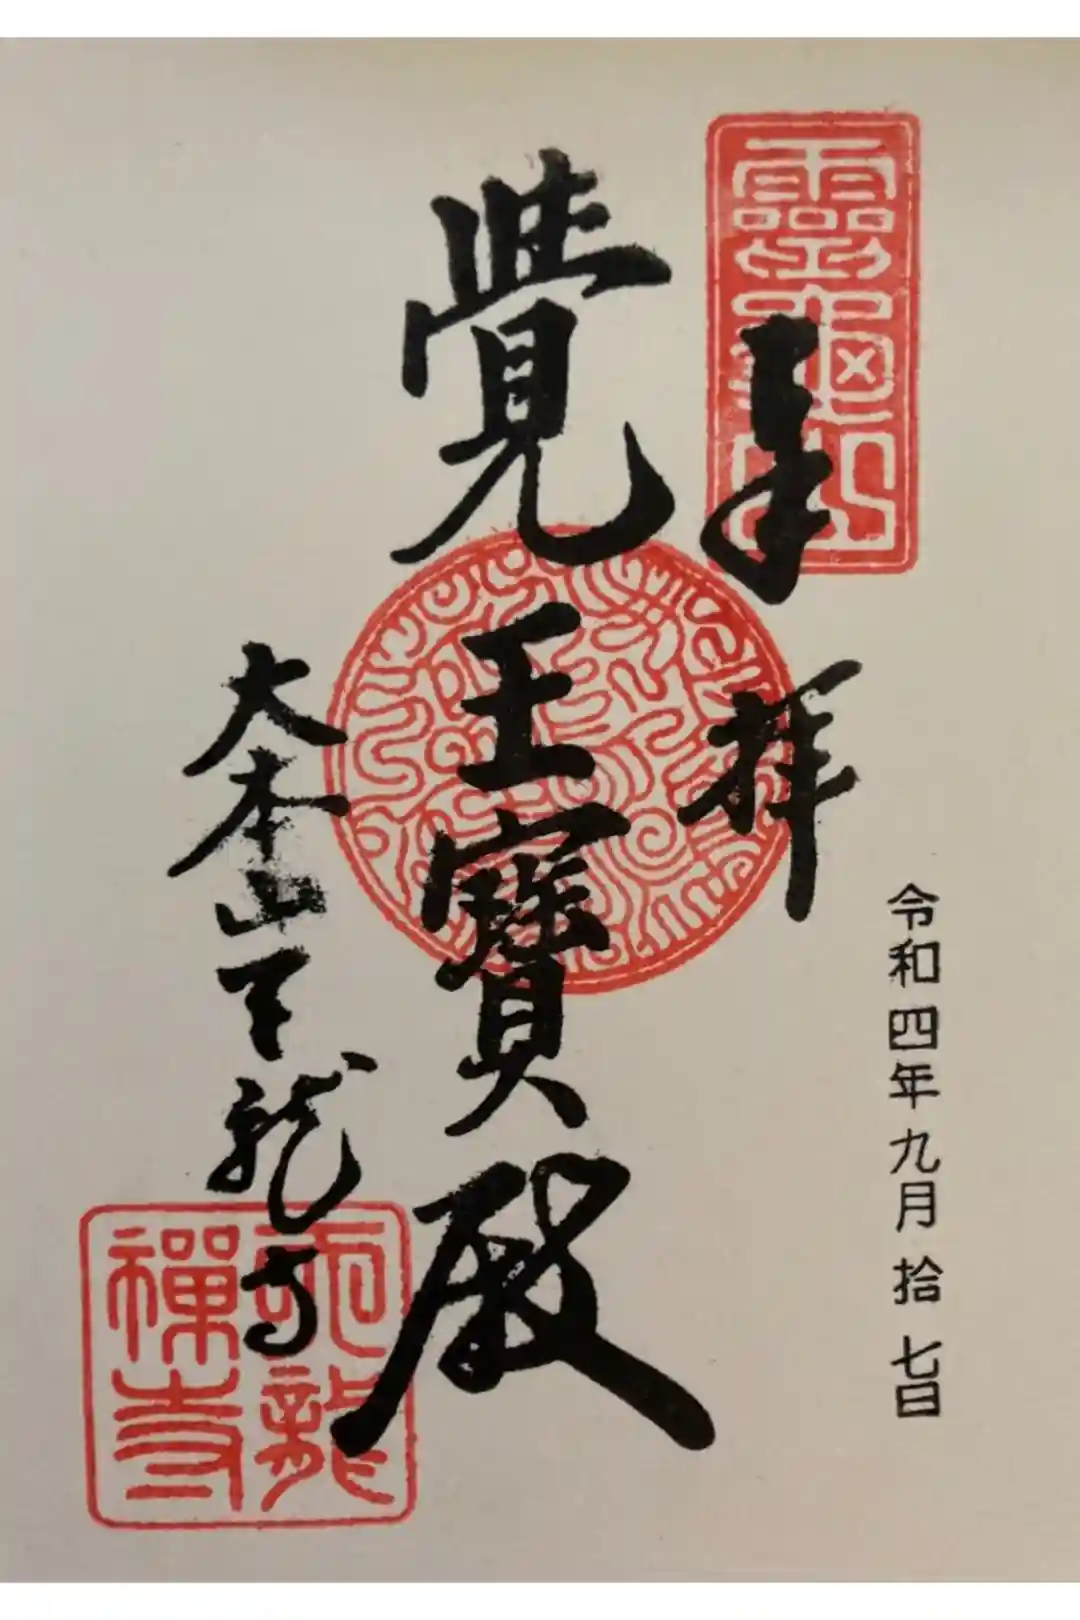 奉拝
令和四年九月拾七日
覺王寶殿
大本山天龍寺
靈龜山
天龍
禪寺